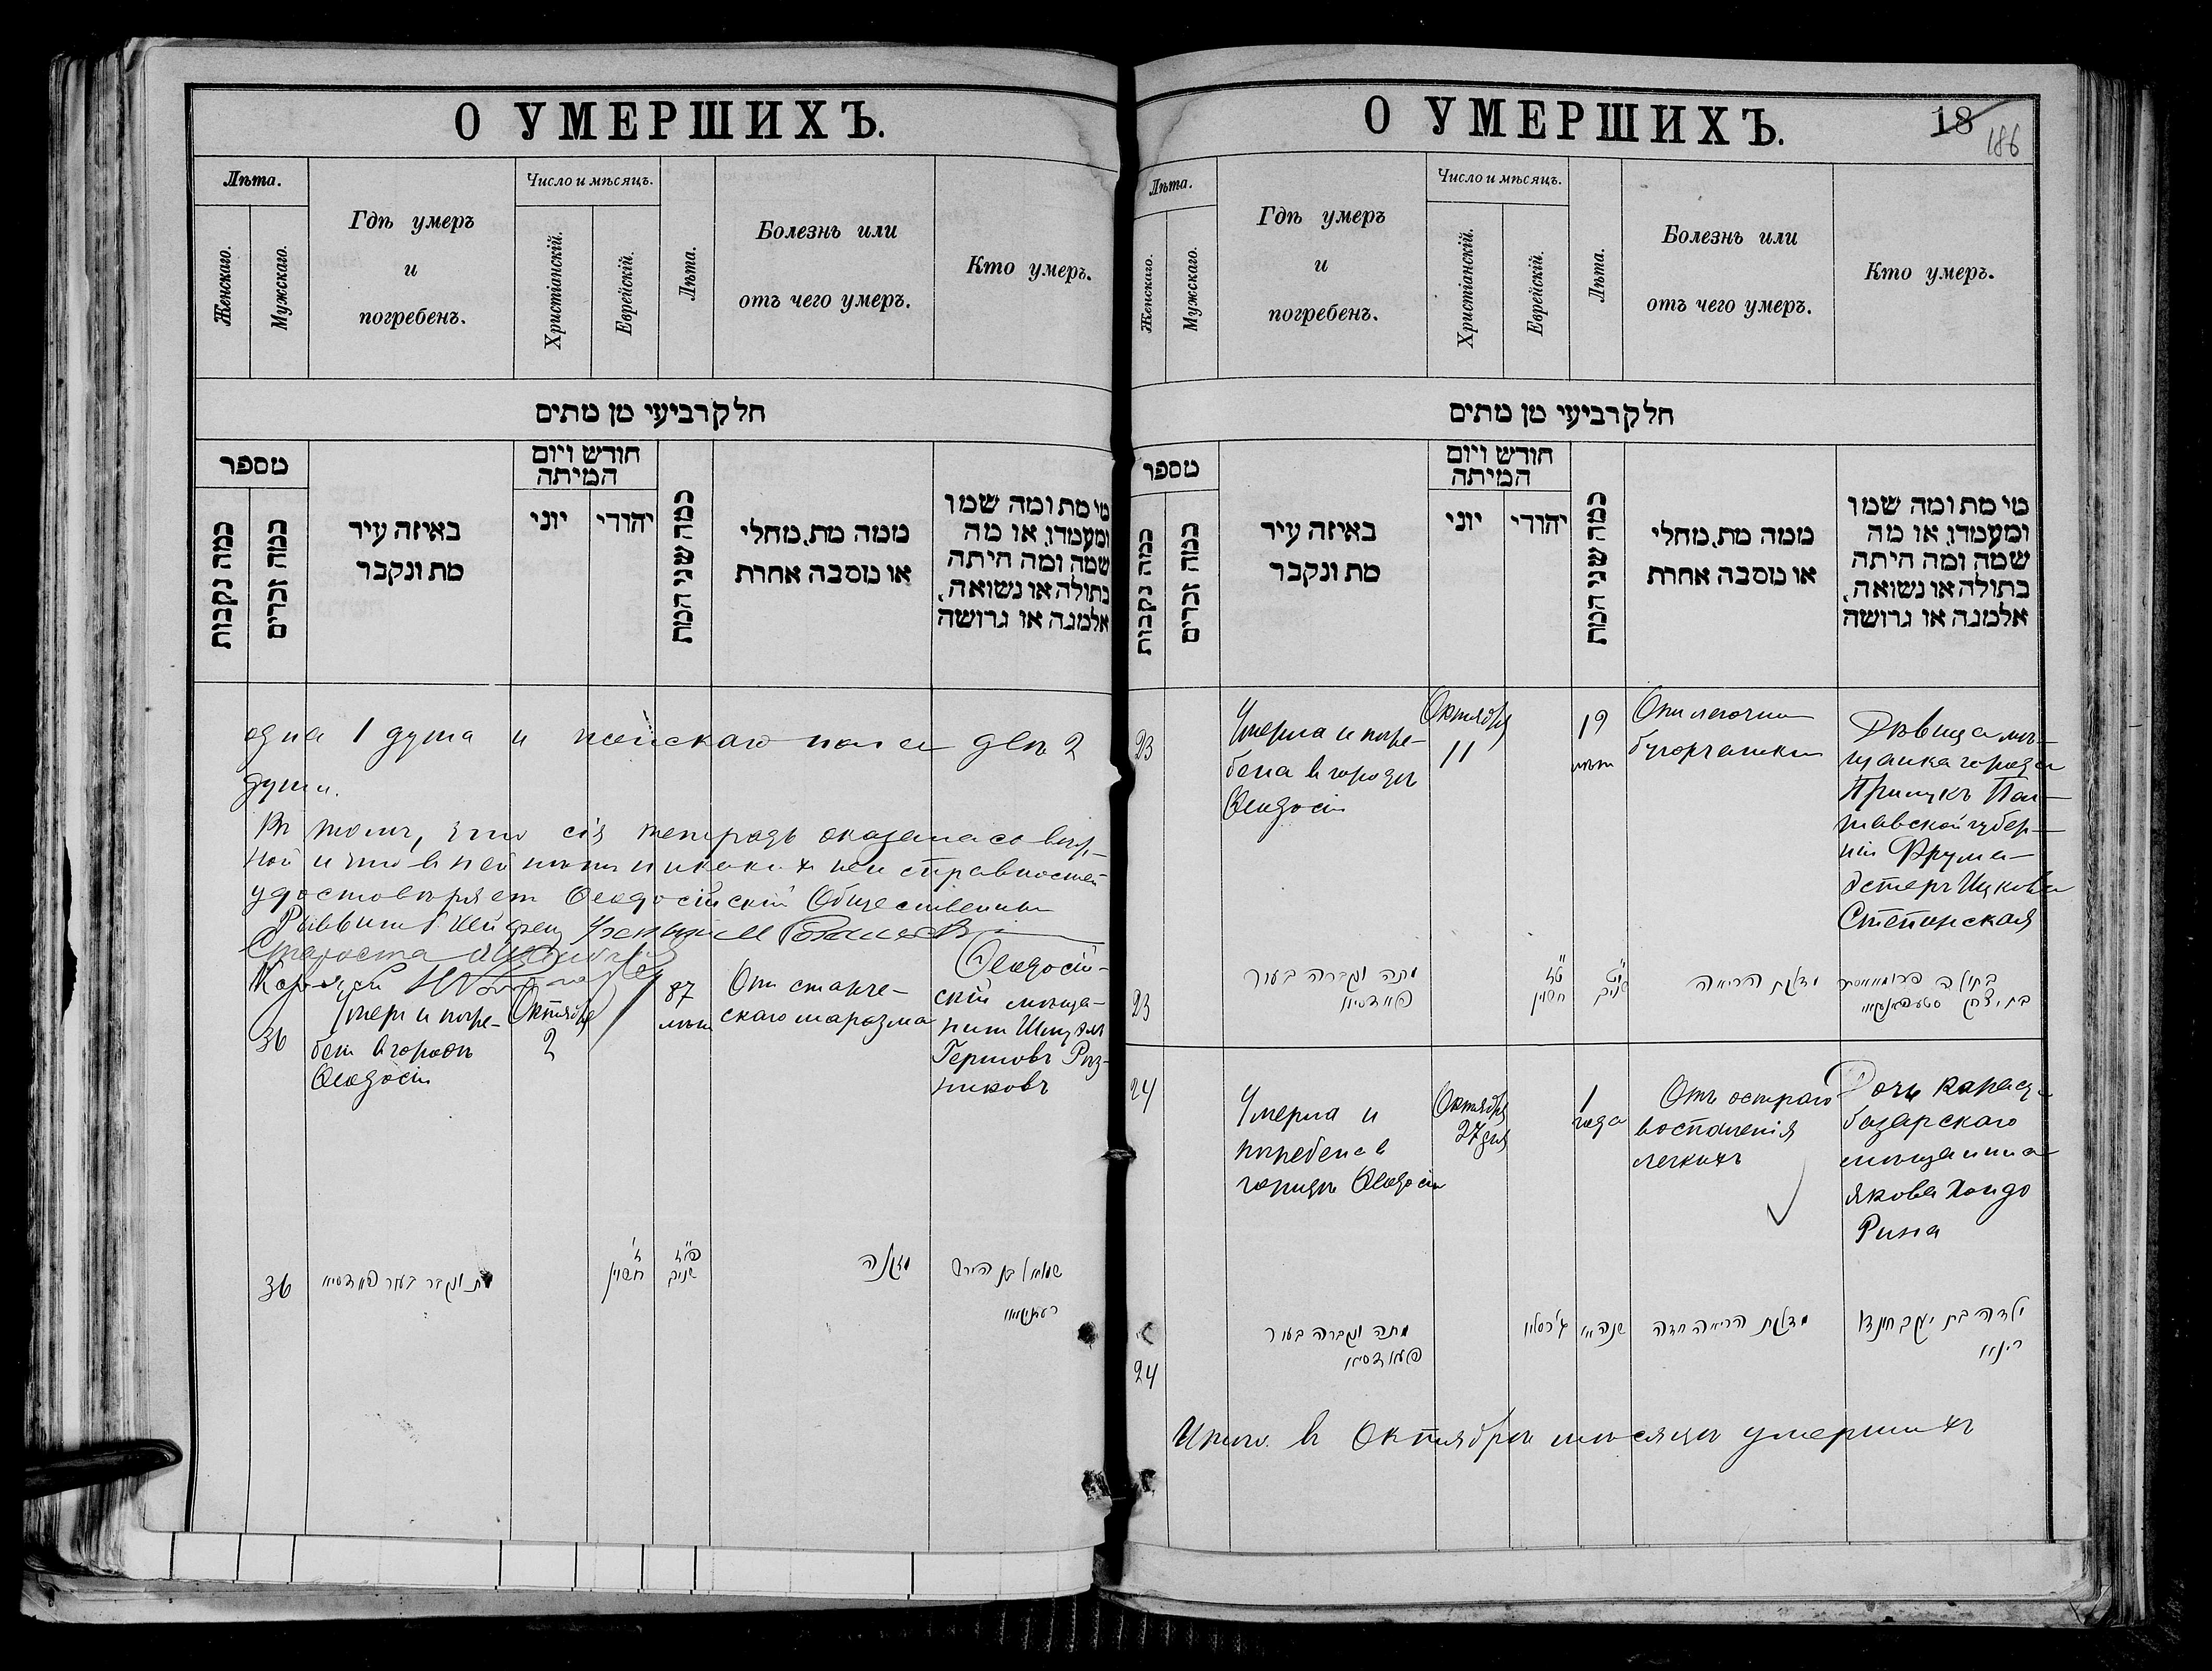 О УМЕРШИХЪ.
Лѣта.
Женскаго.
Мужскаго.
Гдѣ умеръ
и
погребенъ.
Число и мѣсяцъ.
Христіанскій.
Еврейскій.
Лѣта.
Болезнь или
отъ чего умеръ.
Кто умеръ.
חלק רביעי מן מתים
מספר
כמה נקבות
כמה זכרים
באיזה עיר
מת ונקבר
חודש ויום
המיתה
יוני
יהודי
כמה שני המת
ממה מת, מחלי
או מסבה אחרת
מי מת ומה שמו
ומעמדו, או מה
שמה ומה היתה
בתולה או נשואה,
אלמנה או גרושה
одна 1 душа и женскаго пола двѣ 2
души.
Въ томъ, что сія тетрадь оказалась вѣр-
ной и что в ней нѣтъ никакихъ неисправностей
удостовѣряетъ Ѳеодосійскій Общественный
Раввинъ
Староста
36
Умеръ и погре-
бенъ въ городѣ
Ѳеодосіи
Октября
2
87
лѣтъ
От старче-
скаго маразма
Ѳеодосій-
скій мѣща-
нинъ Шмуэль
Гершовъ Рѣз-
никовъ
36
מת ונקבר בעיר
ז'
חשון
פ"ז
שנים
מזקנה
שמואל בן הירש
О УМЕРШИХЪ.
18
186
Лѣта.
Женскаго.
Мужскаго.
Гдѣ умеръ
и
погребенъ.
Число и мѣсяцъ.
Христіанскій.
Еврейскій.
Лѣта.
Болезнь или
отъ чего умеръ.
Кто умеръ.
חלק רביעי מן מתים
מספר
כמה נקבות
כמה זכרים
באיזה עיר
מת ונקבר
חודש ויום
המיתה
יוני
יהודי
כמה שני המת
ממה מת, מחלי
או מסבה אחרת
מי מת ומה שמו
ומעמדו, או מה
שמה ומה היתה
בתולה או נשואה,
אלמנה או גרושה
23
Умерла и погре-
бена в городѣ
Ѳеодосіи
Октября
11
19
лѣтъ
От легочной
бугорчатки
Дѣвица мѣ-
щанка города
Прилукъ Пол-
тавской губер-
ніи Фрума-
Эстеръ Ицкова
Степанская
23
מתה ונקברה בעיר
ט"ז
חשון
י"ט
שנים
מדלקת הריאה
בתולה
בת יצחק
24
Умерла и
погребена в
городѣ Ѳеодосіи
Октября
27 дня
1
года
Отъ остраго
воспаленія
легкихъ
Дочь карасу-
базарскаго
мѣщанина
Якова Хондо
Рина
24
מתה ונקברה בעיר
כסליו
שנה
מדלקת הריאה חדה
ילדה בת יעקב
Итого въ Октябрѣ мѣсяцѣ умершихъ